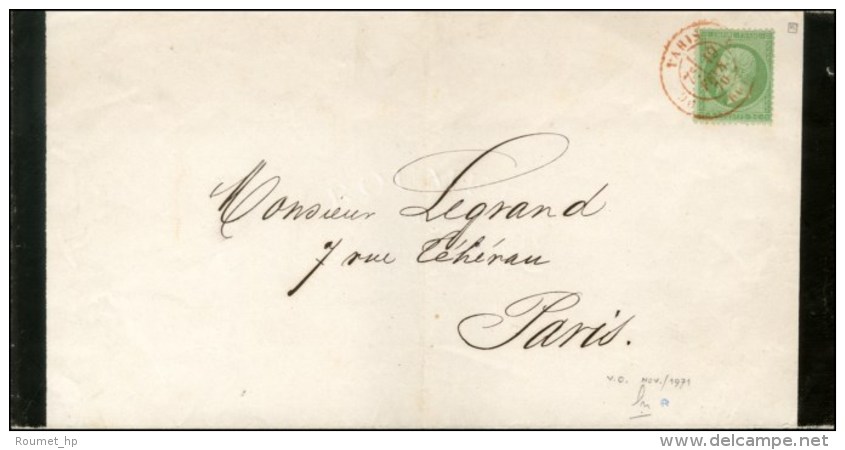 PARIS
Monsieur Legrand
7 rue Téhérau
Paris.
v.o. nov./1971
Roumet_hp
delcampe.net